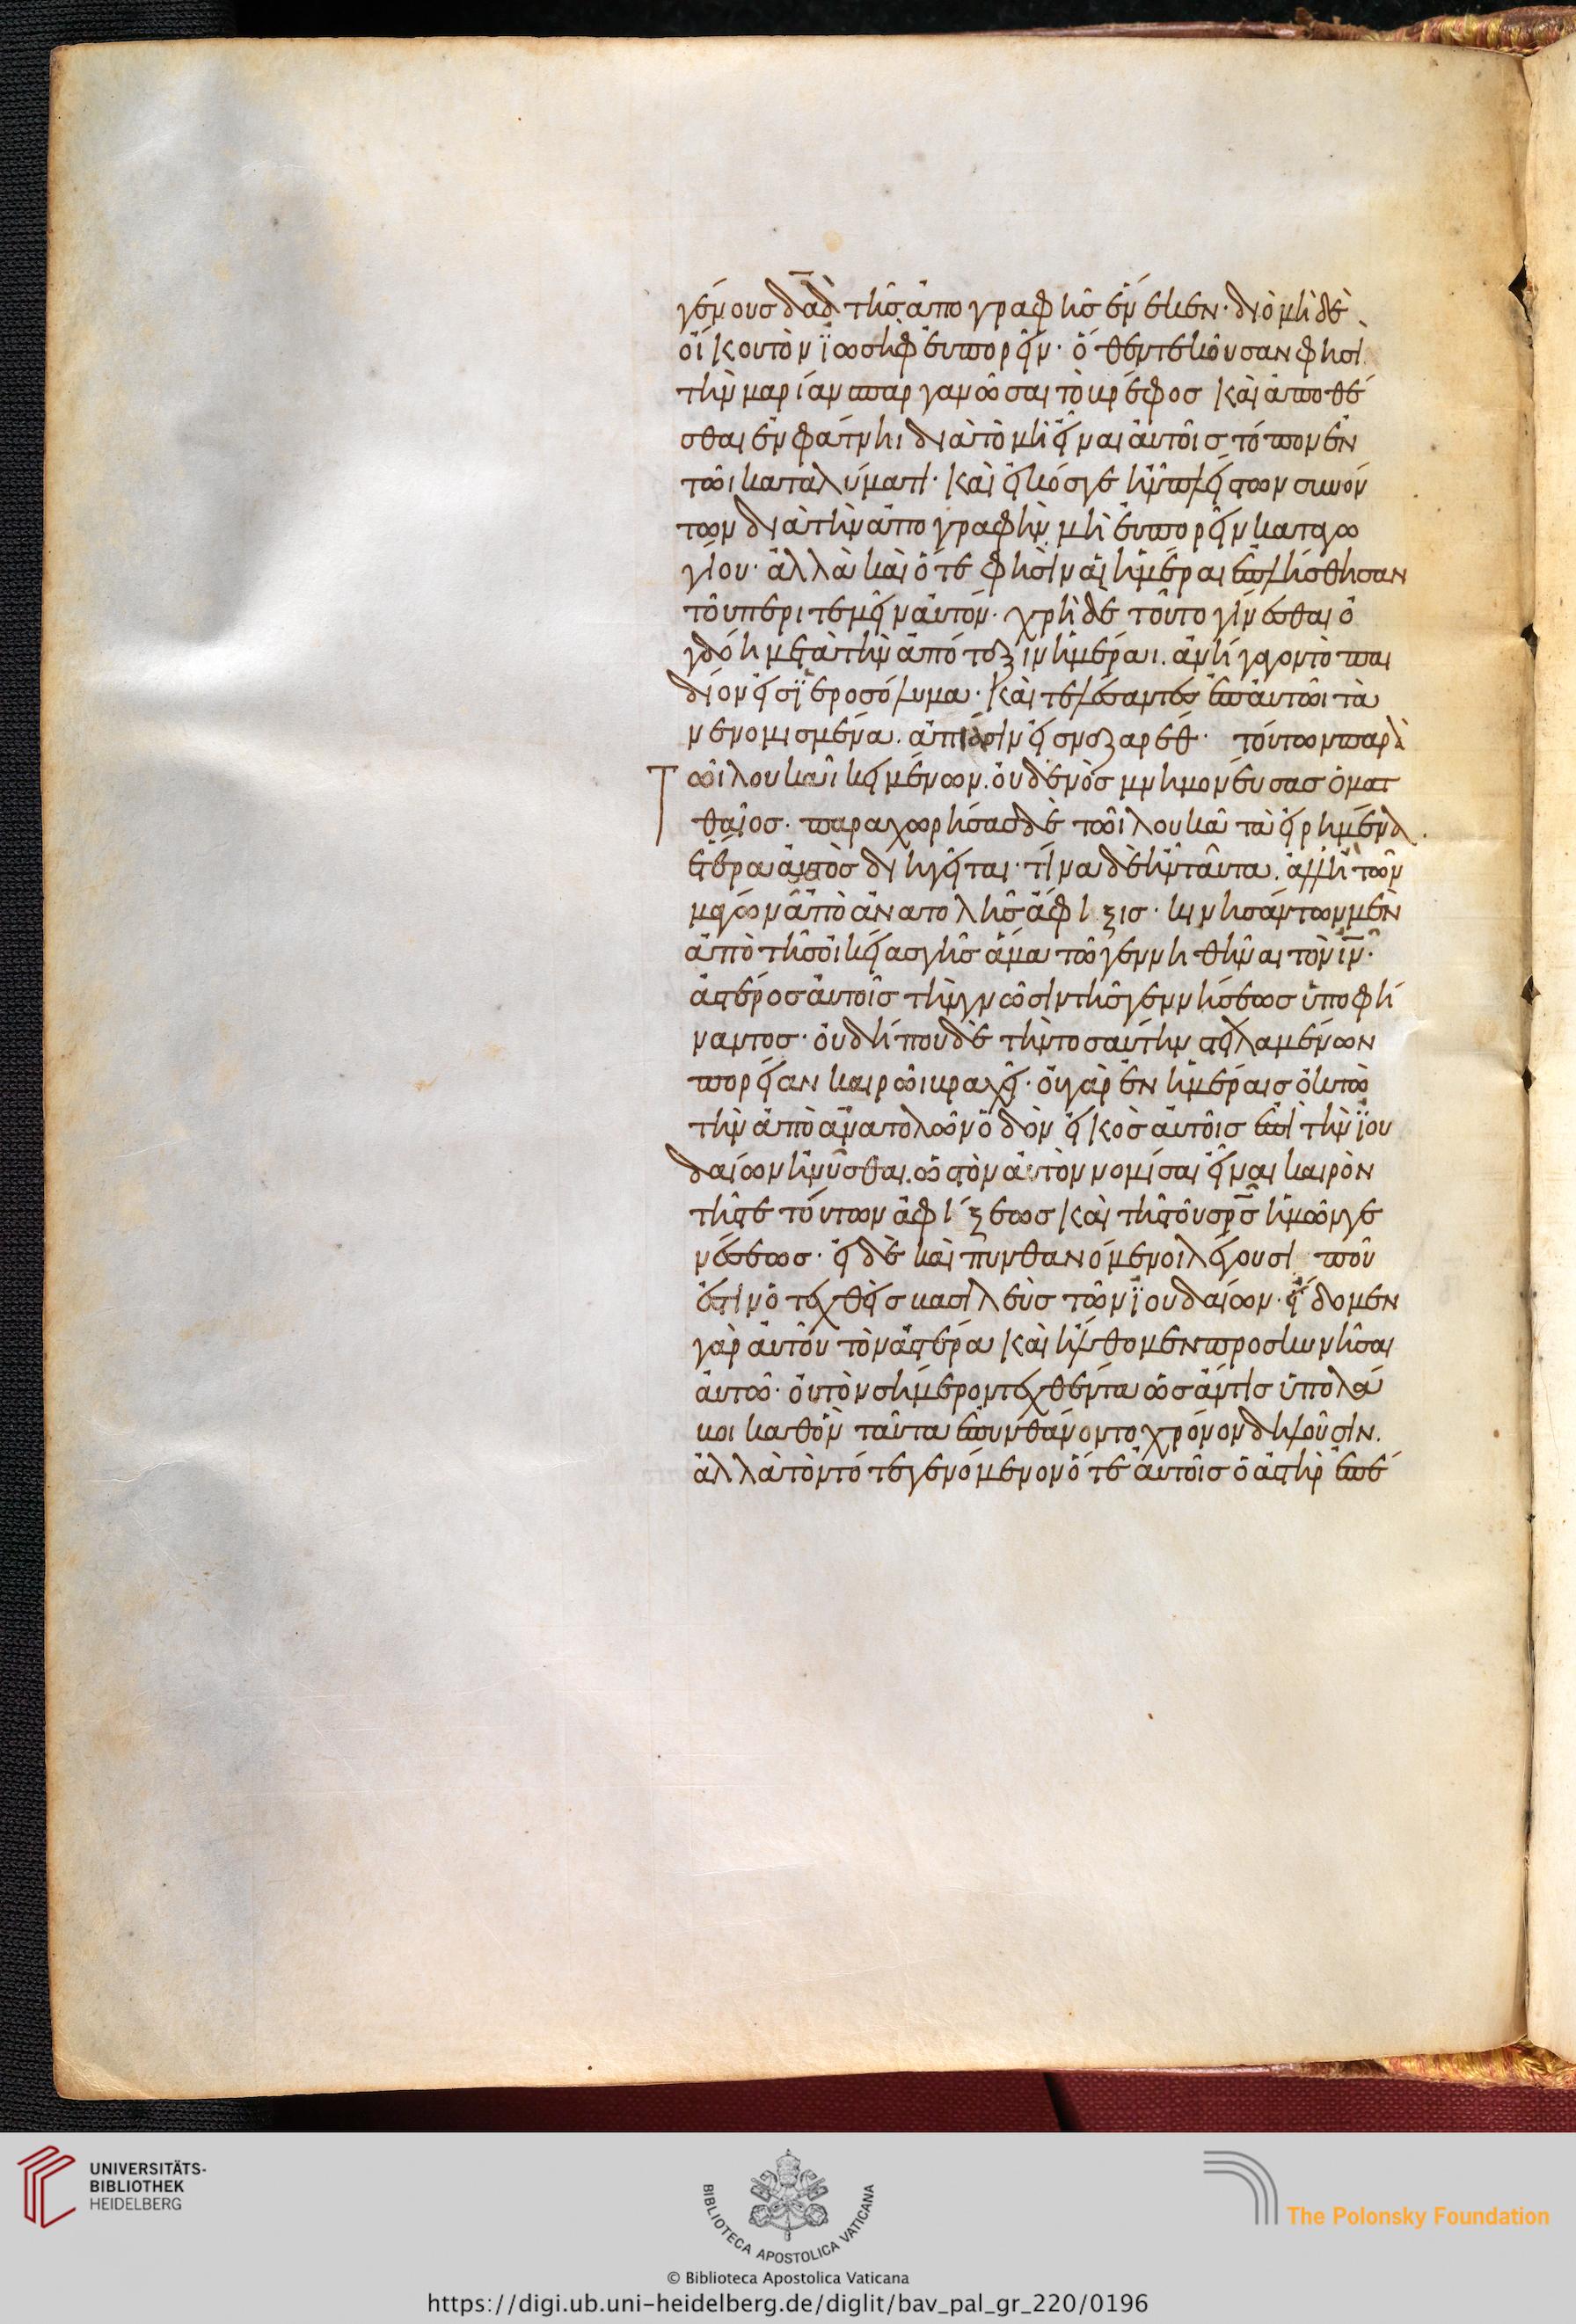 γένους δᾱδ τῆς ἀπογραφῆς ἕνεκεν· διὸ μὴ δὲ
οἴκου τὸν ϊωσὴφ εὐπορεῖν· ὅθεν τεκοῦσαν φησὶ
τὴν μαρίαν σπαργανῶσαι τὸ βρέφος καὶ ἀποθέ
σθαι ἐν φάτνηι διὰ τὸ μὴ εἶναι αὐτοῖς τόπον ἐν
τῶι καταλύματι· καὶ εἰκός γε ἦν πλείστων συνόν
των διὰ τὴν ἀπογραφὴν μὴ εὐπορεῖν καταγω
γίου· ἀλλὰ καὶ ὅτε φησὶν αἱ ἡμέραι ἐπλήσθησαν
τοῦ περιτεμεῖν αὐτόν· χρὴ δὲ τοῦτο γίνεσθαι ὀ
γδόη μετὰ τὴν ἀπότεξιν ἡμέραι. ἀνήγαγον τὸ παι
δίον εἰς ϊεροσόλυμα· καὶ τελέσαντες ἐπ αὐτῶι τὰ
νενομισμένα. ἀπίασιν εἰς ναζαρέθ· τούτων παρὰ
τῶι λουκᾶι κειμένων. οὐδενὸς μνημονεύσας ὁ ματ
θαῖος· παραχωρήσας δὲ τῶι λουκᾶ τὰ εἰρημένα.
ἕτερα αὐτὸς διηγεῖται· τίνα δὲ ἦν ταῦτα. ἀλλ ἢ τῶν
μάγων ἀπὸ ἀνατολῆς ἄφιξις· κινησάντων μὲν
ἀπὸ τῆς οἰκείας γῆς ἅμα τῶ γεννηθῆναι τὸν ῑν̄·
ἀστέρος αὐτοῖς τὴν γνῶσιν τῆς γεννήσεως ὑποφή
ναντος· οὐ δήπου δὲ τὴν τοσαύτην στειλαμένων
πορείαν καιρῶι βραχεῖ· οὐ γὰρ ἐν ἡμέραις ὀκτὼ
τὴν ἀπὸ ἀνατολῶν ὁδὸν εἰκὸς αὐτοῖς ἐπὶ τὴν ϊου
δαίων ἠνῦσθαι. ὡς τὸν αὐτὸν νομίσαι εἶναι καιρὸν
τῆς τε τούτων ἀφίξεως καὶ τῆς τοῦ σ̄ρ̄ς̄ ἡμῶν γε
νέσεως· εἰ δὲ καὶ πυνθανόμενοι λέγουσι ποῦ
ἐστὶν ὁ τεχθεὶς βασιλεὺς τῶν ϊουδαίων· εἴδομεν
γὰρ αὐτοῦ τὸν ἀστέρα καὶ ἤλθομεν προσκυνῆσαι
αὐτῶ· οὐ τὸν σήμερον τεχθέντα ὡς ἄν τις ὑπολά
βοι καθ ὃν ταῦτα ἐπυνθάνοντο χρόνον δηλοῦσιν.
ἀλλὰ τὸν τότε γενόμενον ὅτε αὐτοῖς ὁ ἀστὴρ ἐπέ
UNIVERSITÄTS-
BIBLIOTHEK
HEIDELBERG
BIBLIOTECA APOSTOLICA VATICANA
The Polonsky Foundation
© Biblioteca Apostolica Vaticana
https://digi.ub.uni-heidelberg.de/diglit/bav_pal_gr_220/0196